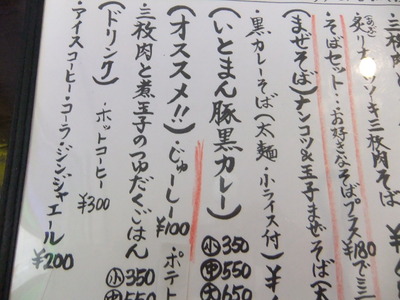 三枚肉そば
炙りナンソキ三枚肉そば
そばセット・・・お好きなそばプラス¥180でミニ
(まぜそば)ナンコツ&玉子まぜそば(大
・黒カレーそば(太麺・小ライス付)¥
(いとまん豚黒カレー)小350 中550 大650
(オススメ!!)・じゅーしー¥100・ポテト
・三枚肉と煮玉子のつゆだくごはん小350 中550
(ドリンク)・ホットコーヒー¥300
・アイスコーヒー・コーラ・ジンジャエール¥200